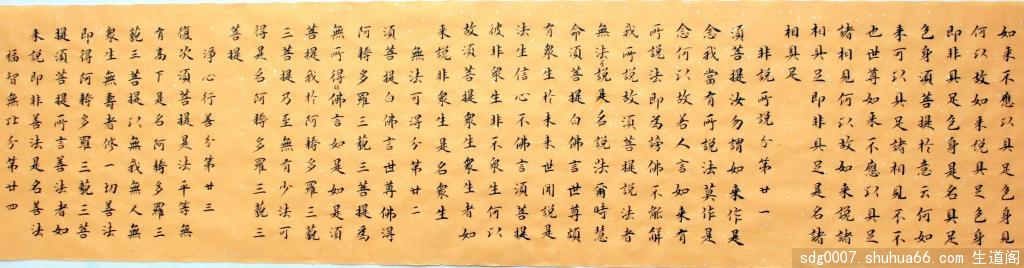 如來不應以具足色身見
何以故如來說具足色身
即非具足色身是名具足
色身須菩提於意云何如
來可以具足諸相見不不
也世尊如來不應以具足
諸相見何以故如來說諸
相具足即非具足是名諸
相具足
非說所說分第廿一
須菩提汝勿謂如來作是
念我當有所說法莫作是
念何以故若人言如來有
所說法即為謗佛不能解
我所說故須菩提說法者
無法可說是名說法爾時慧
命須菩提白佛言世尊頗
有眾生於未來世聞說是
法生信心不佛言須菩提
彼非眾生非不眾生何以
故須菩提眾生眾生者如
來說非眾生是名眾生
無法可得分第廿二
須菩提白佛言世尊佛得
阿耨多羅三藐三菩提為
無所得耶佛言如是如是須
菩提我於阿耨多羅三藐
三菩提乃至無有少法可
得是名阿耨多羅三藐三
菩提
淨心行善分第廿三
復次須菩提是法平等無
有高下是名阿耨多羅三
藐三菩提以無我無人無
眾生無壽者修一切善法
即得阿耨多羅三藐三菩
提須菩提所言善法者如
來說即非善法是名善法
福智無比分第廿四
sdg0007.shuhua66.com 生道阁